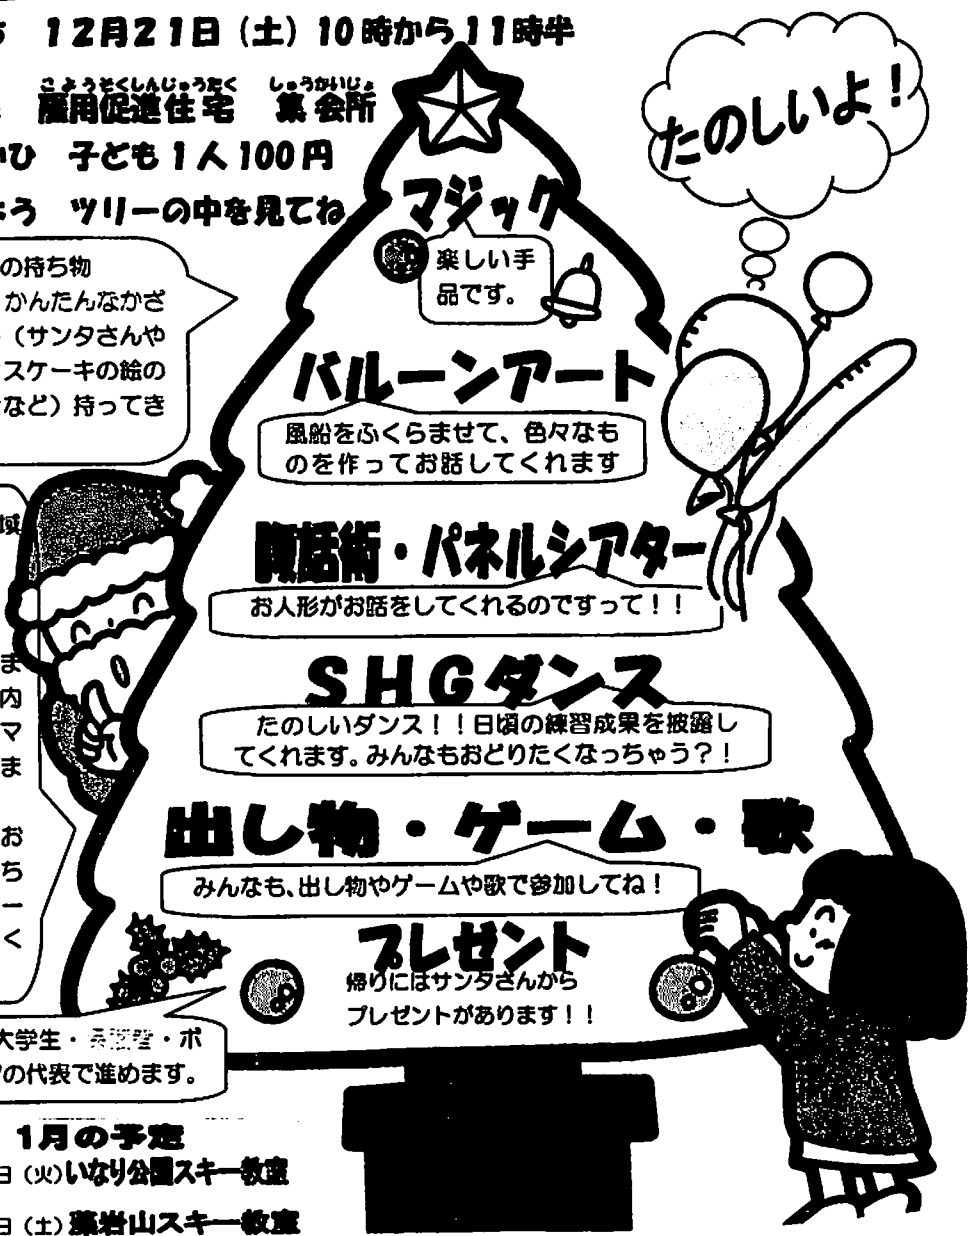 12月21日（土）10時から11時半
こようそくしんじゅうたく しゅうかいじょ
雇用促進住宅 集会所
ひ 子ども1人100円
よう ツリーの中を見てね
たのしいよ！
マジック
楽しい手
品です。
の持ち物
かんたんなかざ
（サンタさんや
スケーキの絵の
など）持ってき
バルーンアート
風船をふくらませて、色々なも
のを作ってお話してくれます
腹話術・パネルシアター
お人形がお話をしてくれるのですって！！
SHGダンス
たのしいダンス！！日頃の練習成果を披露し
てくれます。みんなもおどりたくなっちゃう？！
域
ま
内
マ
ま
お
ち
ー
く
出し物・ゲーム・歌
みんなも、出し物やゲームや歌で参加してね！
プレゼント
帰りにはサンタさんから
プレゼントがあります！！
大学生・・ボ
の代表で進めます。
1月の予定
日（火）いなり公園スキー教室
日（土）藻岩山スキー教室